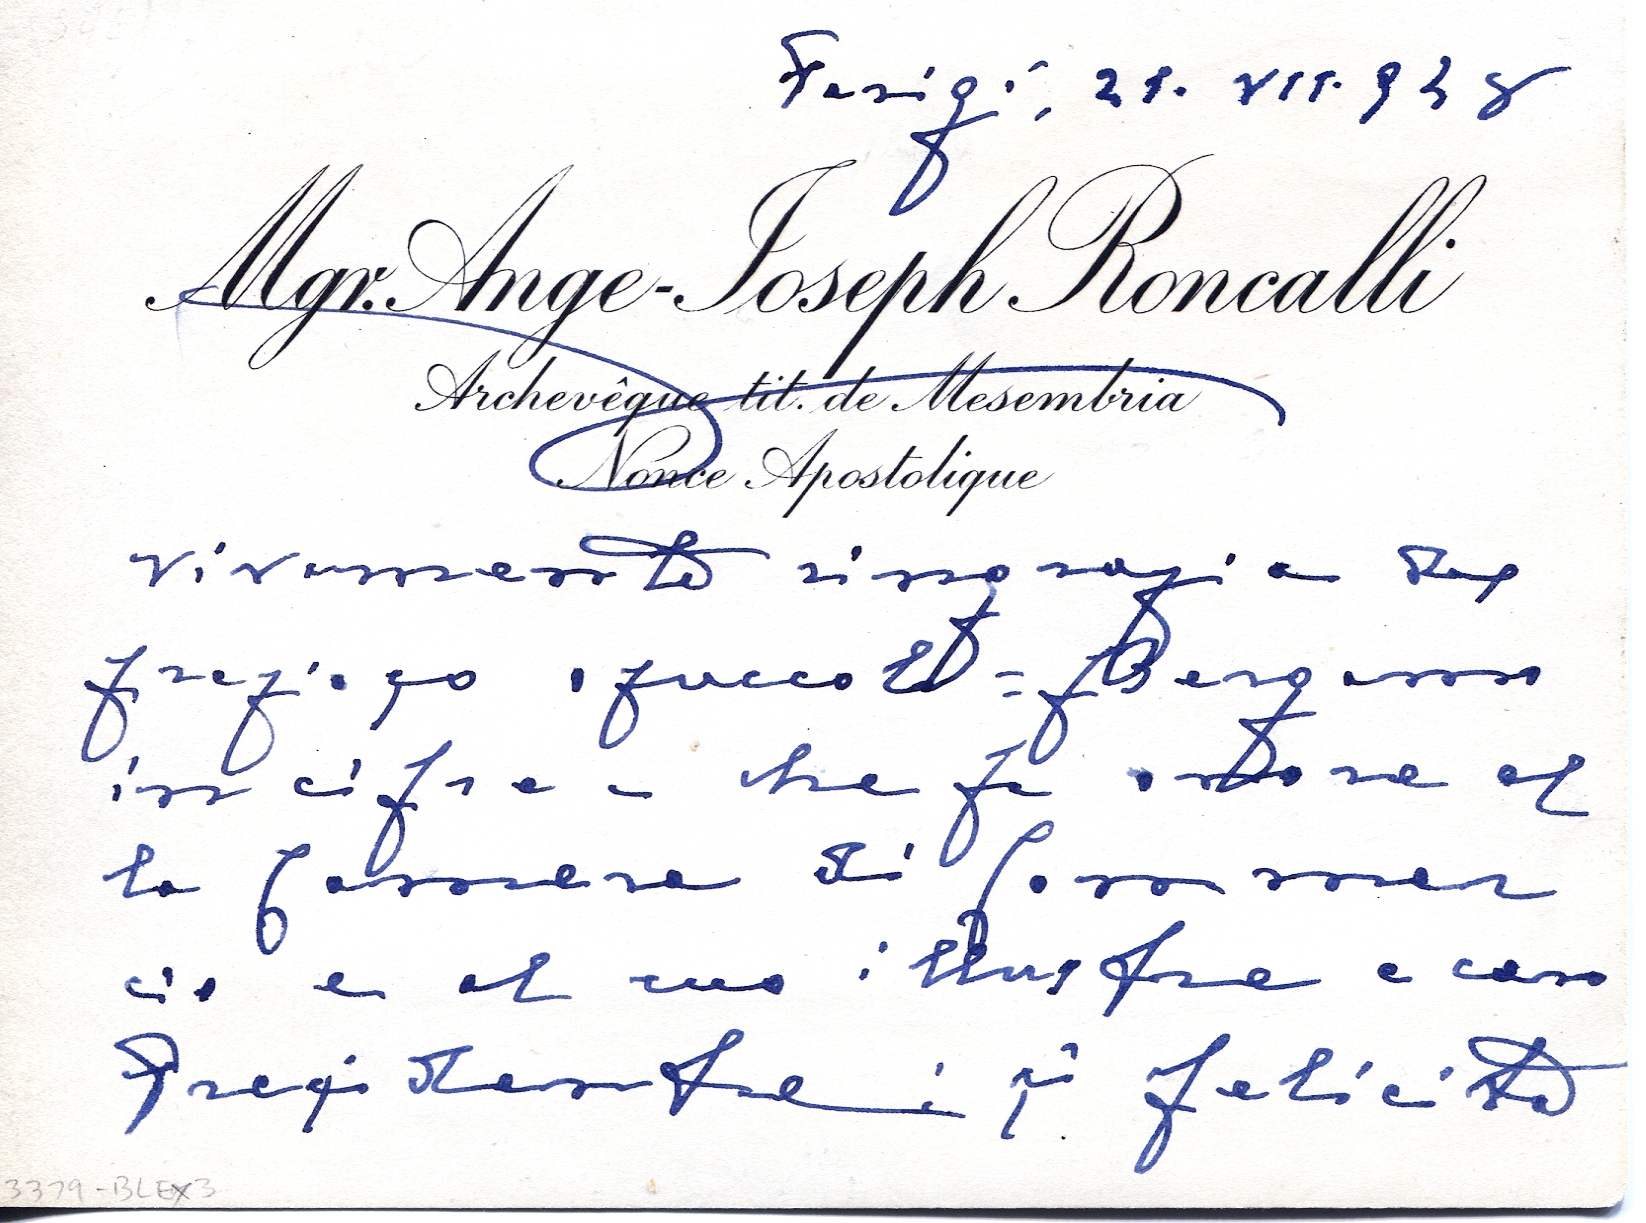 Parigi, 21. VII. 948
Mgr. Ange-Joseph Roncalli
Archevêque tit. de Mesembria
Nonce Apostolique
vivamente ringrazia del
pregiato opuscolo = Bergamo
in cifre = che fa onore al
la Camera di Commer
cio e al suo illustre e caro
Presidente e si felicita
3379-BLEX3